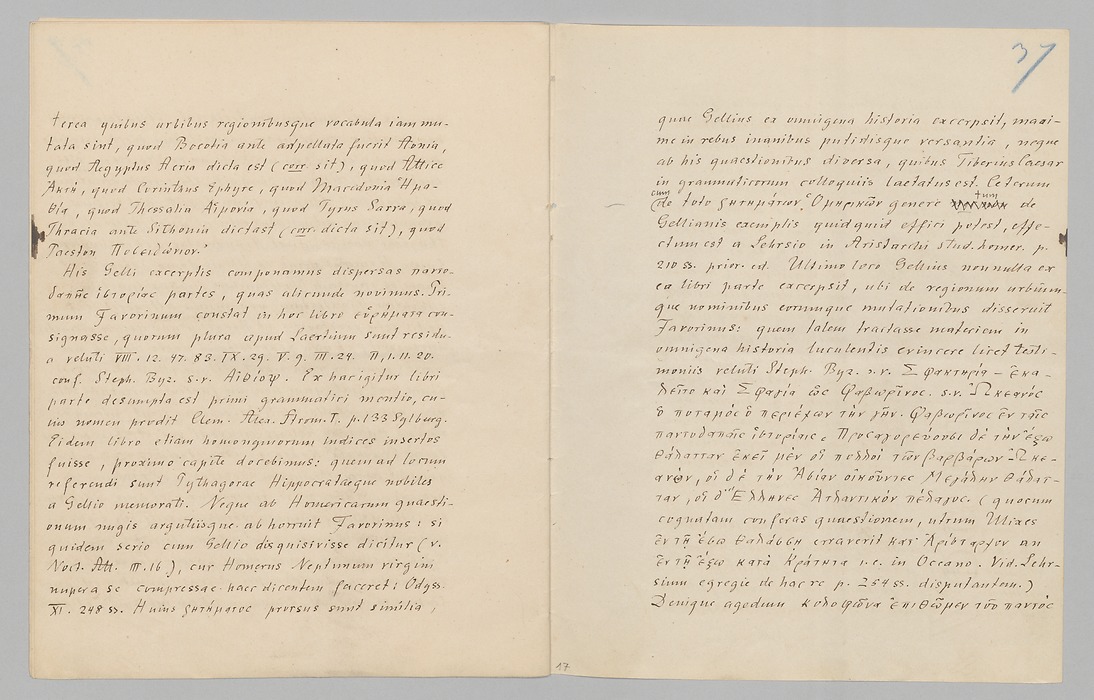 terea quibus urbibus regionibusque vocabula iam mu-
tata sint, quod Boeotia ante adpellata fuerit Aonia,
quod Aegyptus Aeria dicta est (corr sit), quod Attice
Ἀκτή, quod Corinthus Ephyre, quod Macedonia Ἠμα-
θία, quod Thessalia Αἱμονία, quod Tyrus Sarra, quod
Thracia ante Sithonia dictast (corr dicta sit), quod
Paeston Ποσειδώνιον.'
His Gelli excerptis componamus dispersas panto-
δαπῆς ἱστορίας partes, quas aliunde novimus. Pri-
mum Favorinum constat in hoc libro εὑρήματα con-
signasse, quorum plura apud Laertium sunt residu-
a veluti VIII. 12. 47. 83. IX. 29. V. 9. III. 24. II, 1. 11. 20.
conf. Steph. Byz. s.v. Αἰθίοψ. Ex hac igitur libri
parte desumpta est primi grammatici mentio, cu-
ius nomen prodit Clem. Alex. Strom. I. p. 133 Sylburg.
Eidem libro etiam homonymorum indices insertos
fuisse, proximo capite docebimus: quem ad locum
referendi sunt Pythagorae Hippocrataeque nobiles
a Gellio memorati. Neque ab Homericarum quaesti-
onum nugis argutiisque abhorruit Favorinus: si
quidem serio cum Gellio disquisivisse dicitur (v.
Noct. Att. III. 16), cur Homerus Neptunum virgini
nupera se compressae haec dicentem faceret: Odyss.
XI. 248 ss. Huius ζητήματος prorsus sunt similia,
17
37
quae Gellius ex omnigena historia excerpsit, maxi-
me in rebus inanibus putidisque versantia, neque
ab his quaestionibus diversa, quibus Tiberius Caesar
in grammaticorum colloquiis laetatus est. Ceterum
cum
(de toto ζητημάτων Ὁμηρικῶν genere tum de
Gellianis exemplis quidquid effici potest, effe-
ctum est a Lehrsio in Aristarchi stud. homer. p.
210 ss. prior. ed. Ultimo loco Gellius nonnulla ex
ea libri parte excerpsit, ubi de regionum urbium-
que nominibus eorumque mutationibus disseruit
Favorinus: quem talem tractasse materiem in
omnigena historia luculentis evincere licet testi-
moniis veluti Steph. Byz. s.v. Σφακτηρία – ἐκα-
λεῖτο καὶ Σφαγία ὡς Φαβωρῖνος. s.v. Ὠκεανός
ὁ ποταμὸς ὁ περιέχων τὴν γῆν. Φαβωρῖνος ἐν ταῖς
παντοδαπαῖς ἱστορίαις. Προσαγορεύουσι δὲ τὴν ἔξω
θάλατταν ἐκεῖ μὲν οἱ πολλοὶ τῶν βαρβάρων Ὠκε-
ανόν, οἱ δὲ τὴν Ἀσίαν οἰκοῦντες Μεγάλην θάλατ-
ταν, οἱ δ' Ἕλληνες Ἀτλαντικὸν πέλαγος. (quocum
cognatam conferas quaestionem, utrum Ulixes
ἐν τῇ ἔσω θαλάσσῃ erraverit κατ' Ἀρίσταρχον an
ἐν τῇ ἔξω κατὰ Κράτητα i.e. in Oceano. Vid. Lehr-
sium egregie de hac re p. 254 ss. disputantem.)
Denique agedum κολοφῶνα ἐπιθῶμεν τοῦ παντός